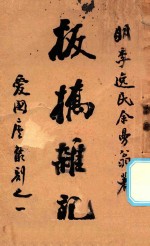 明季逸民余曼翁著
板橋雜記
愛國廬叢刻之一